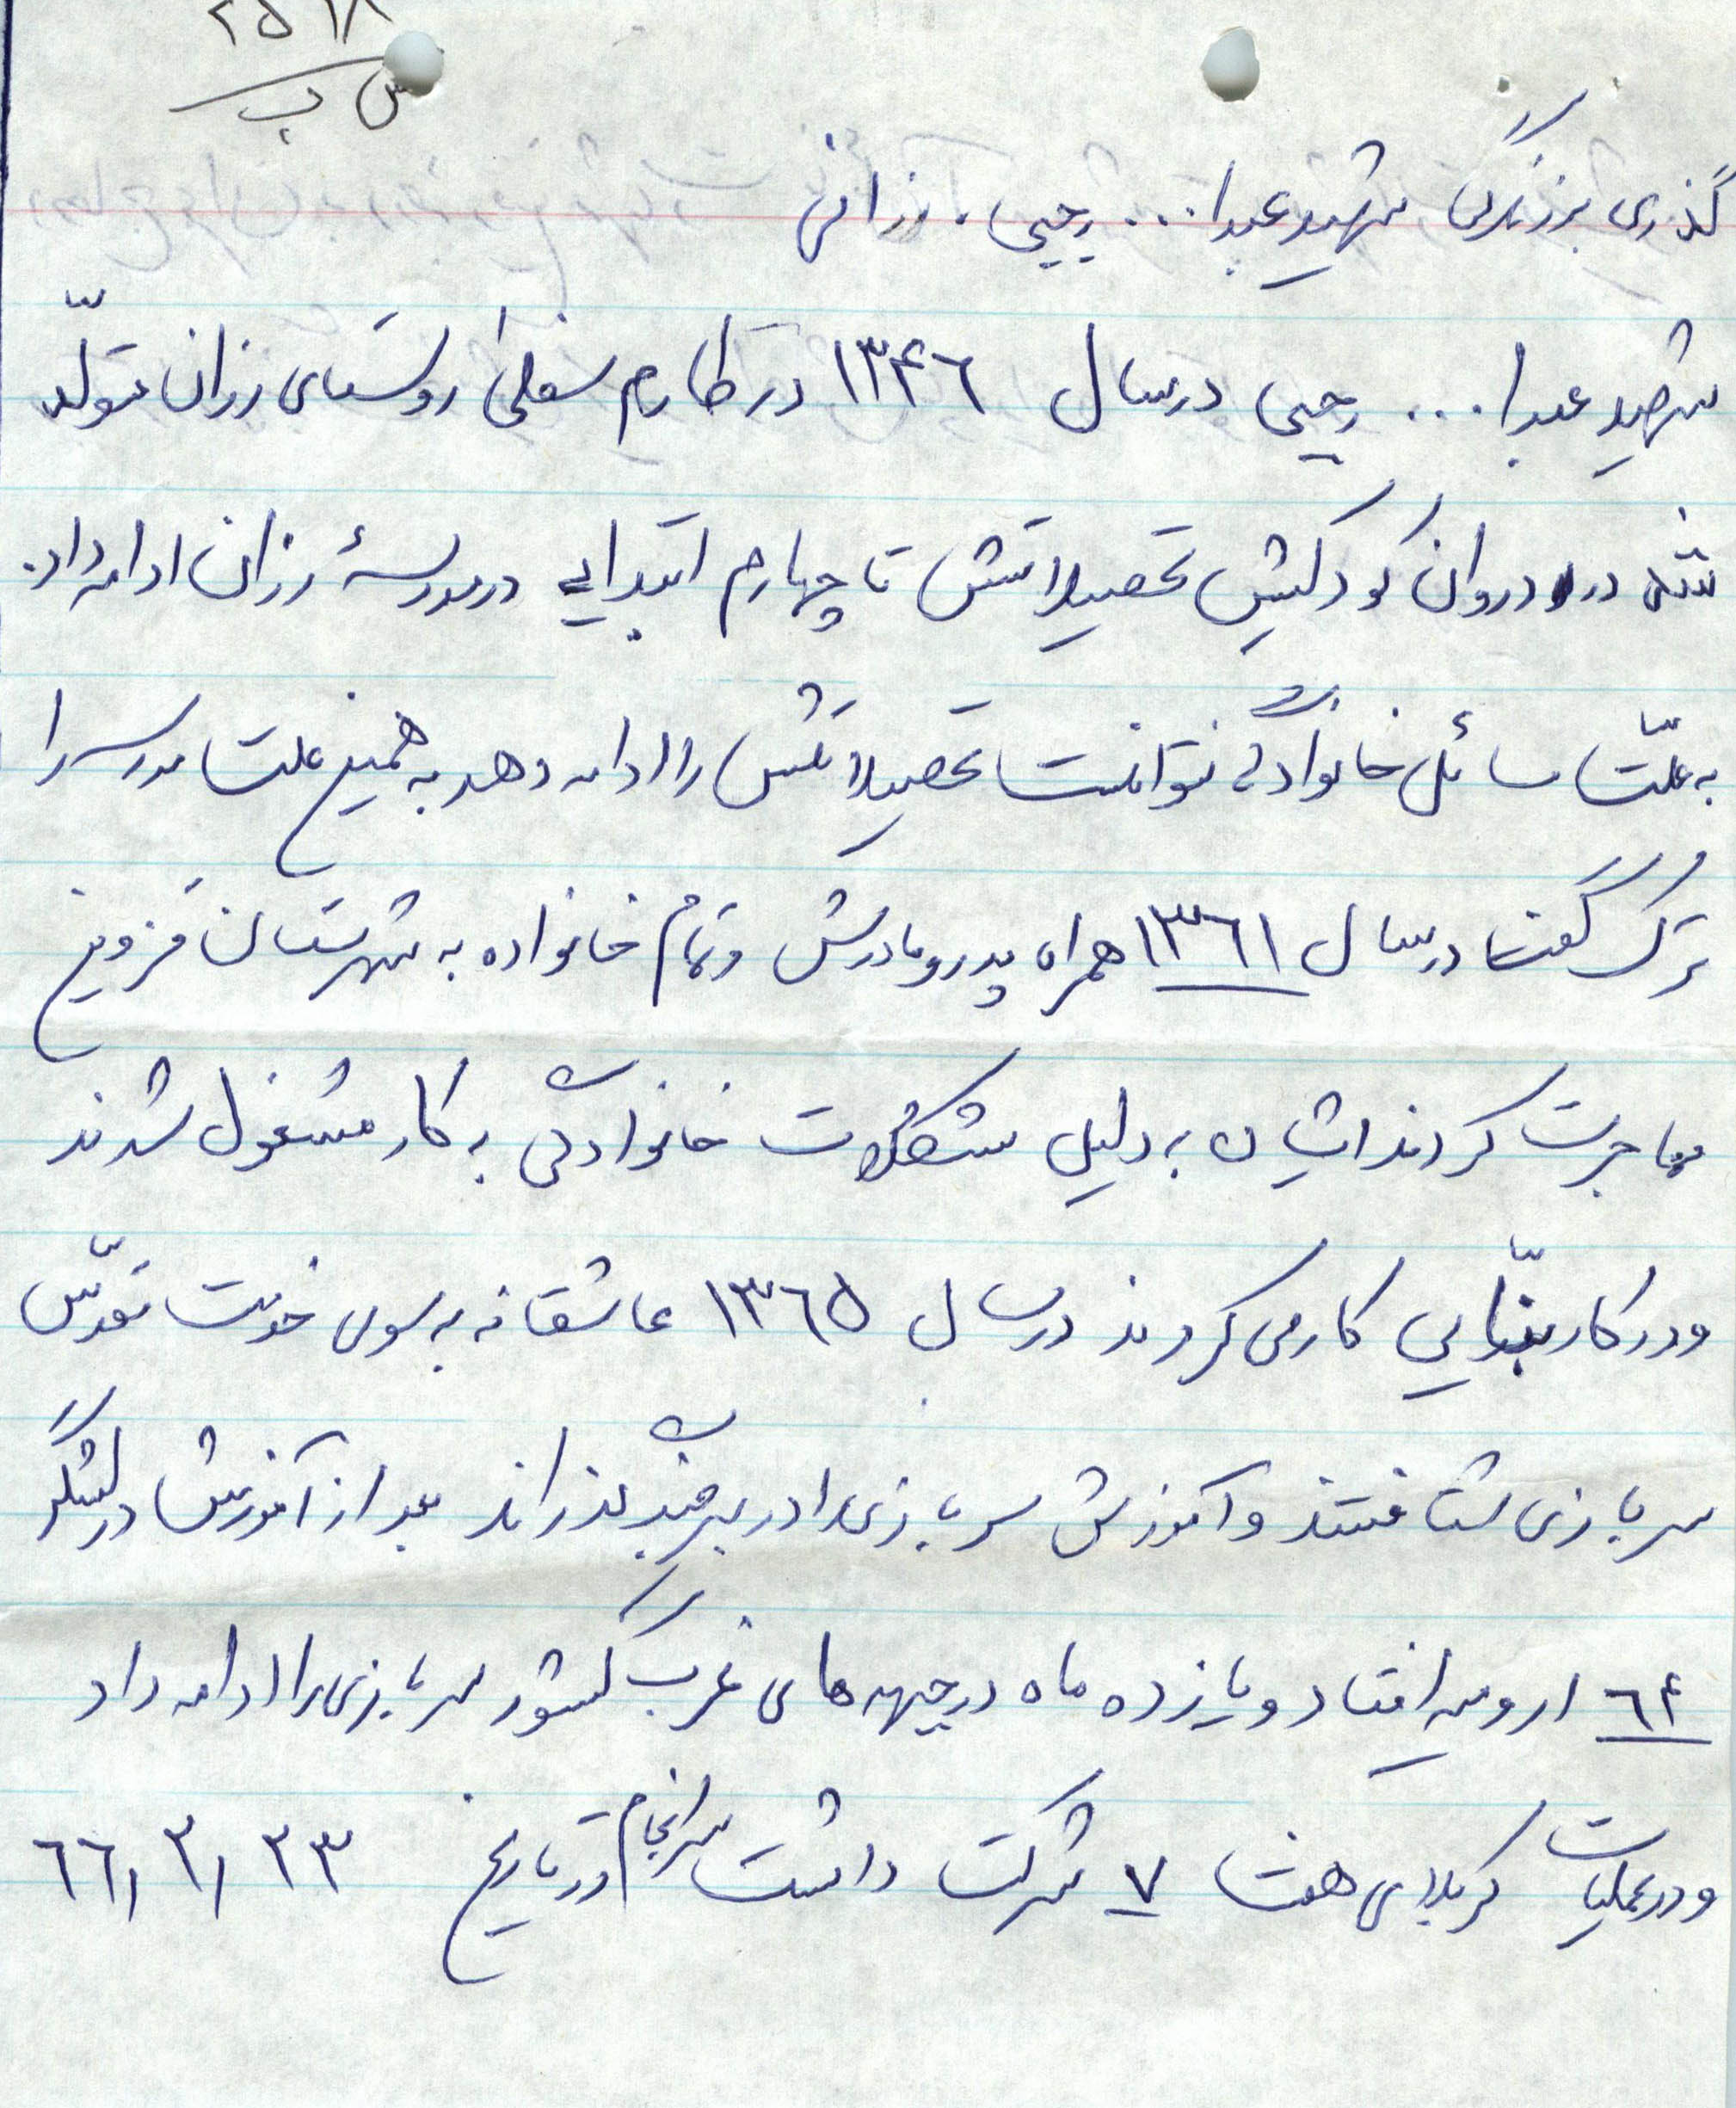 ۲۵۱۸
س ب
گذری بر زندگی شهید عبدا... رجبی رزانی
شهید عبدا... رجبی در سال ۱۳۴۶ در طارم سفلی روستای رزان متولّد
شد در دوران کودکیش تحصیلاتش تا چهارم ابتدایی در مدرسۀ رزان ادامه داد.
به علّت مسائل خانوادگی نتوانست تحصیلاتش را ادامه دهد به همین علت مدرسه را
ترک گفت در سال ۱۳۶۱ همراه پدر و مادرش و تمام خانواده به شهرستان قزوین
مهاجرت کردند ایشان به دلیل مشکلات خانوادگی به کار مشغول شدند
و در کار بنّایی کار می کردند در سال ۱۳۶۵ عاشقانه به سوی خدمت مقدّس
سربازی شتافتند و آموزش سربازی را در بیرجند گذراند بعد از آموزش در لشگر
۶۴ ارومیه افتاد و یازده ماه در جبهه های غرب کشور سربازی را ادامه داد
و در عملیات کربلای هفت ۷ شرکت داشت سرانجام در تاریخ ۶۶٫۳٫۲۳